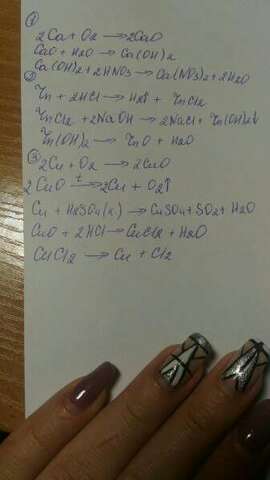 ①
2Ca + O₂ → 2CaO
CaO + H₂O → Ca(OH)₂
Ca(OH)₂ + 2HNO₃ → Ca(NO₃)₂ + 2H₂O
②
Zn + 2HCl → H₂↑ + ZnCl₂
ZnCl₂ + 2NaOH → 2NaCl + Zn(OH)₂↓
Zn(OH)₂ → ZnO + H₂O
③
2Cu + O₂ → 2CuO
2CuO →ᵗ 2Cu + O₂↑
Cu + H₂SO₄(к.) → CuSO₄ + SO₂ + H₂O
CuO + 2HCl → CuCl₂ + H₂O
CuCl₂ → Cu + Cl₂